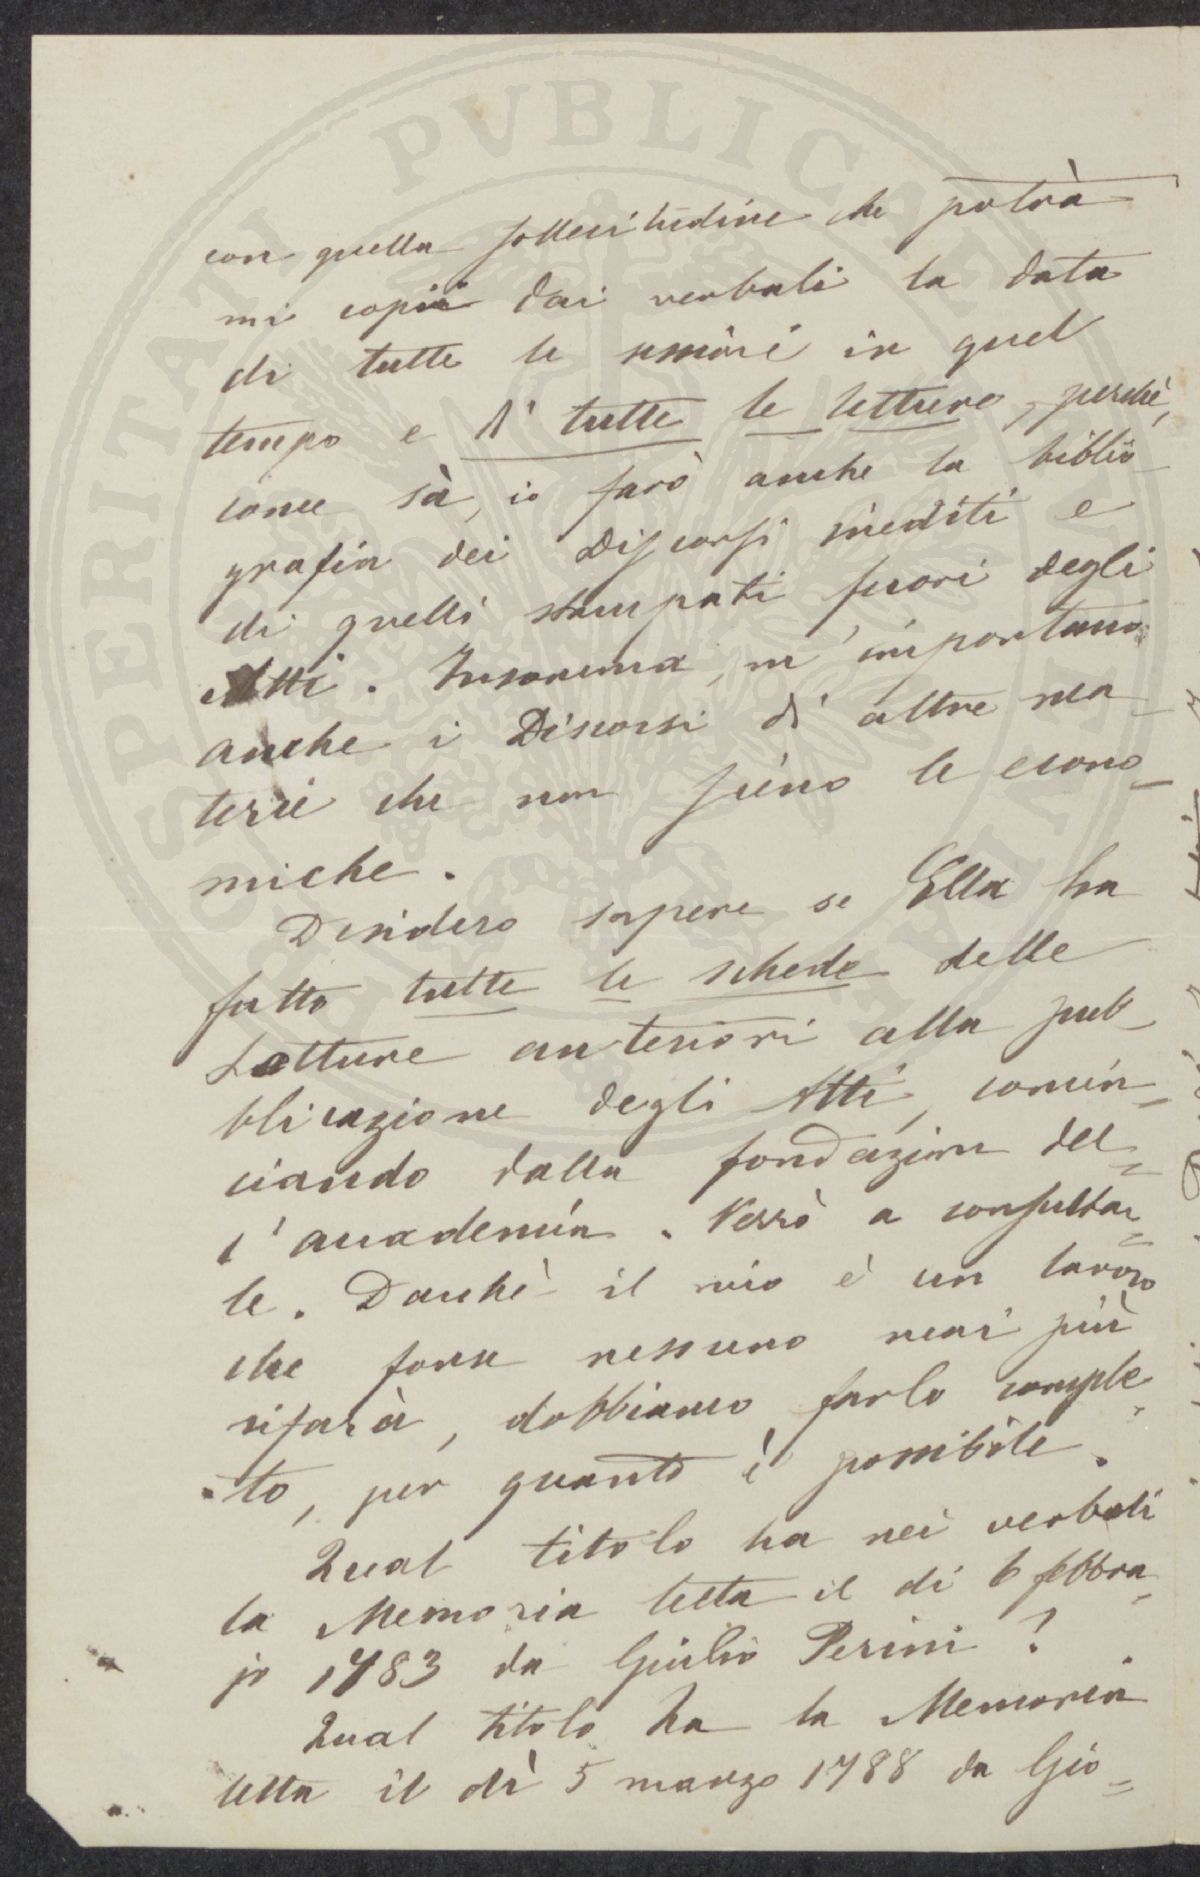 con quella sollecitudine che potrà
mi copii dai verbali la data
di tutte le riunioni in quel
tempo e di tutte le letture, perchè,
come sà, io farò anche la biblio
grafia dei Discorsi inediti e
di quelli stampati fuori degli
Atti. Insomma, m'importano
anche i Discorsi di altre ma-
terie che non sieno le econo-
miche.
Desidero sapere se Ella ha
fatto tutte le schede delle
Letture anteriori alla pub-
blicazione degli Atti, comin=
ciando dalla fondazione del=
l'accademia. Verrò a consultar=
le. Dacchè il mio è un lavoro
che forse nessuno mai più
rifarà, dobbiamo farlo comple-
to, per quanto è possibile.
Qual titolo ha nei verbali
la Memoria letta il dì 6 febbra=
jo 1783 da Giulio Perini?
Qual titolo ha la Memoria
letta il dì 5 marzo 1788 da Gio=
PROSPERITATI PVBLICAE AVGENDAE